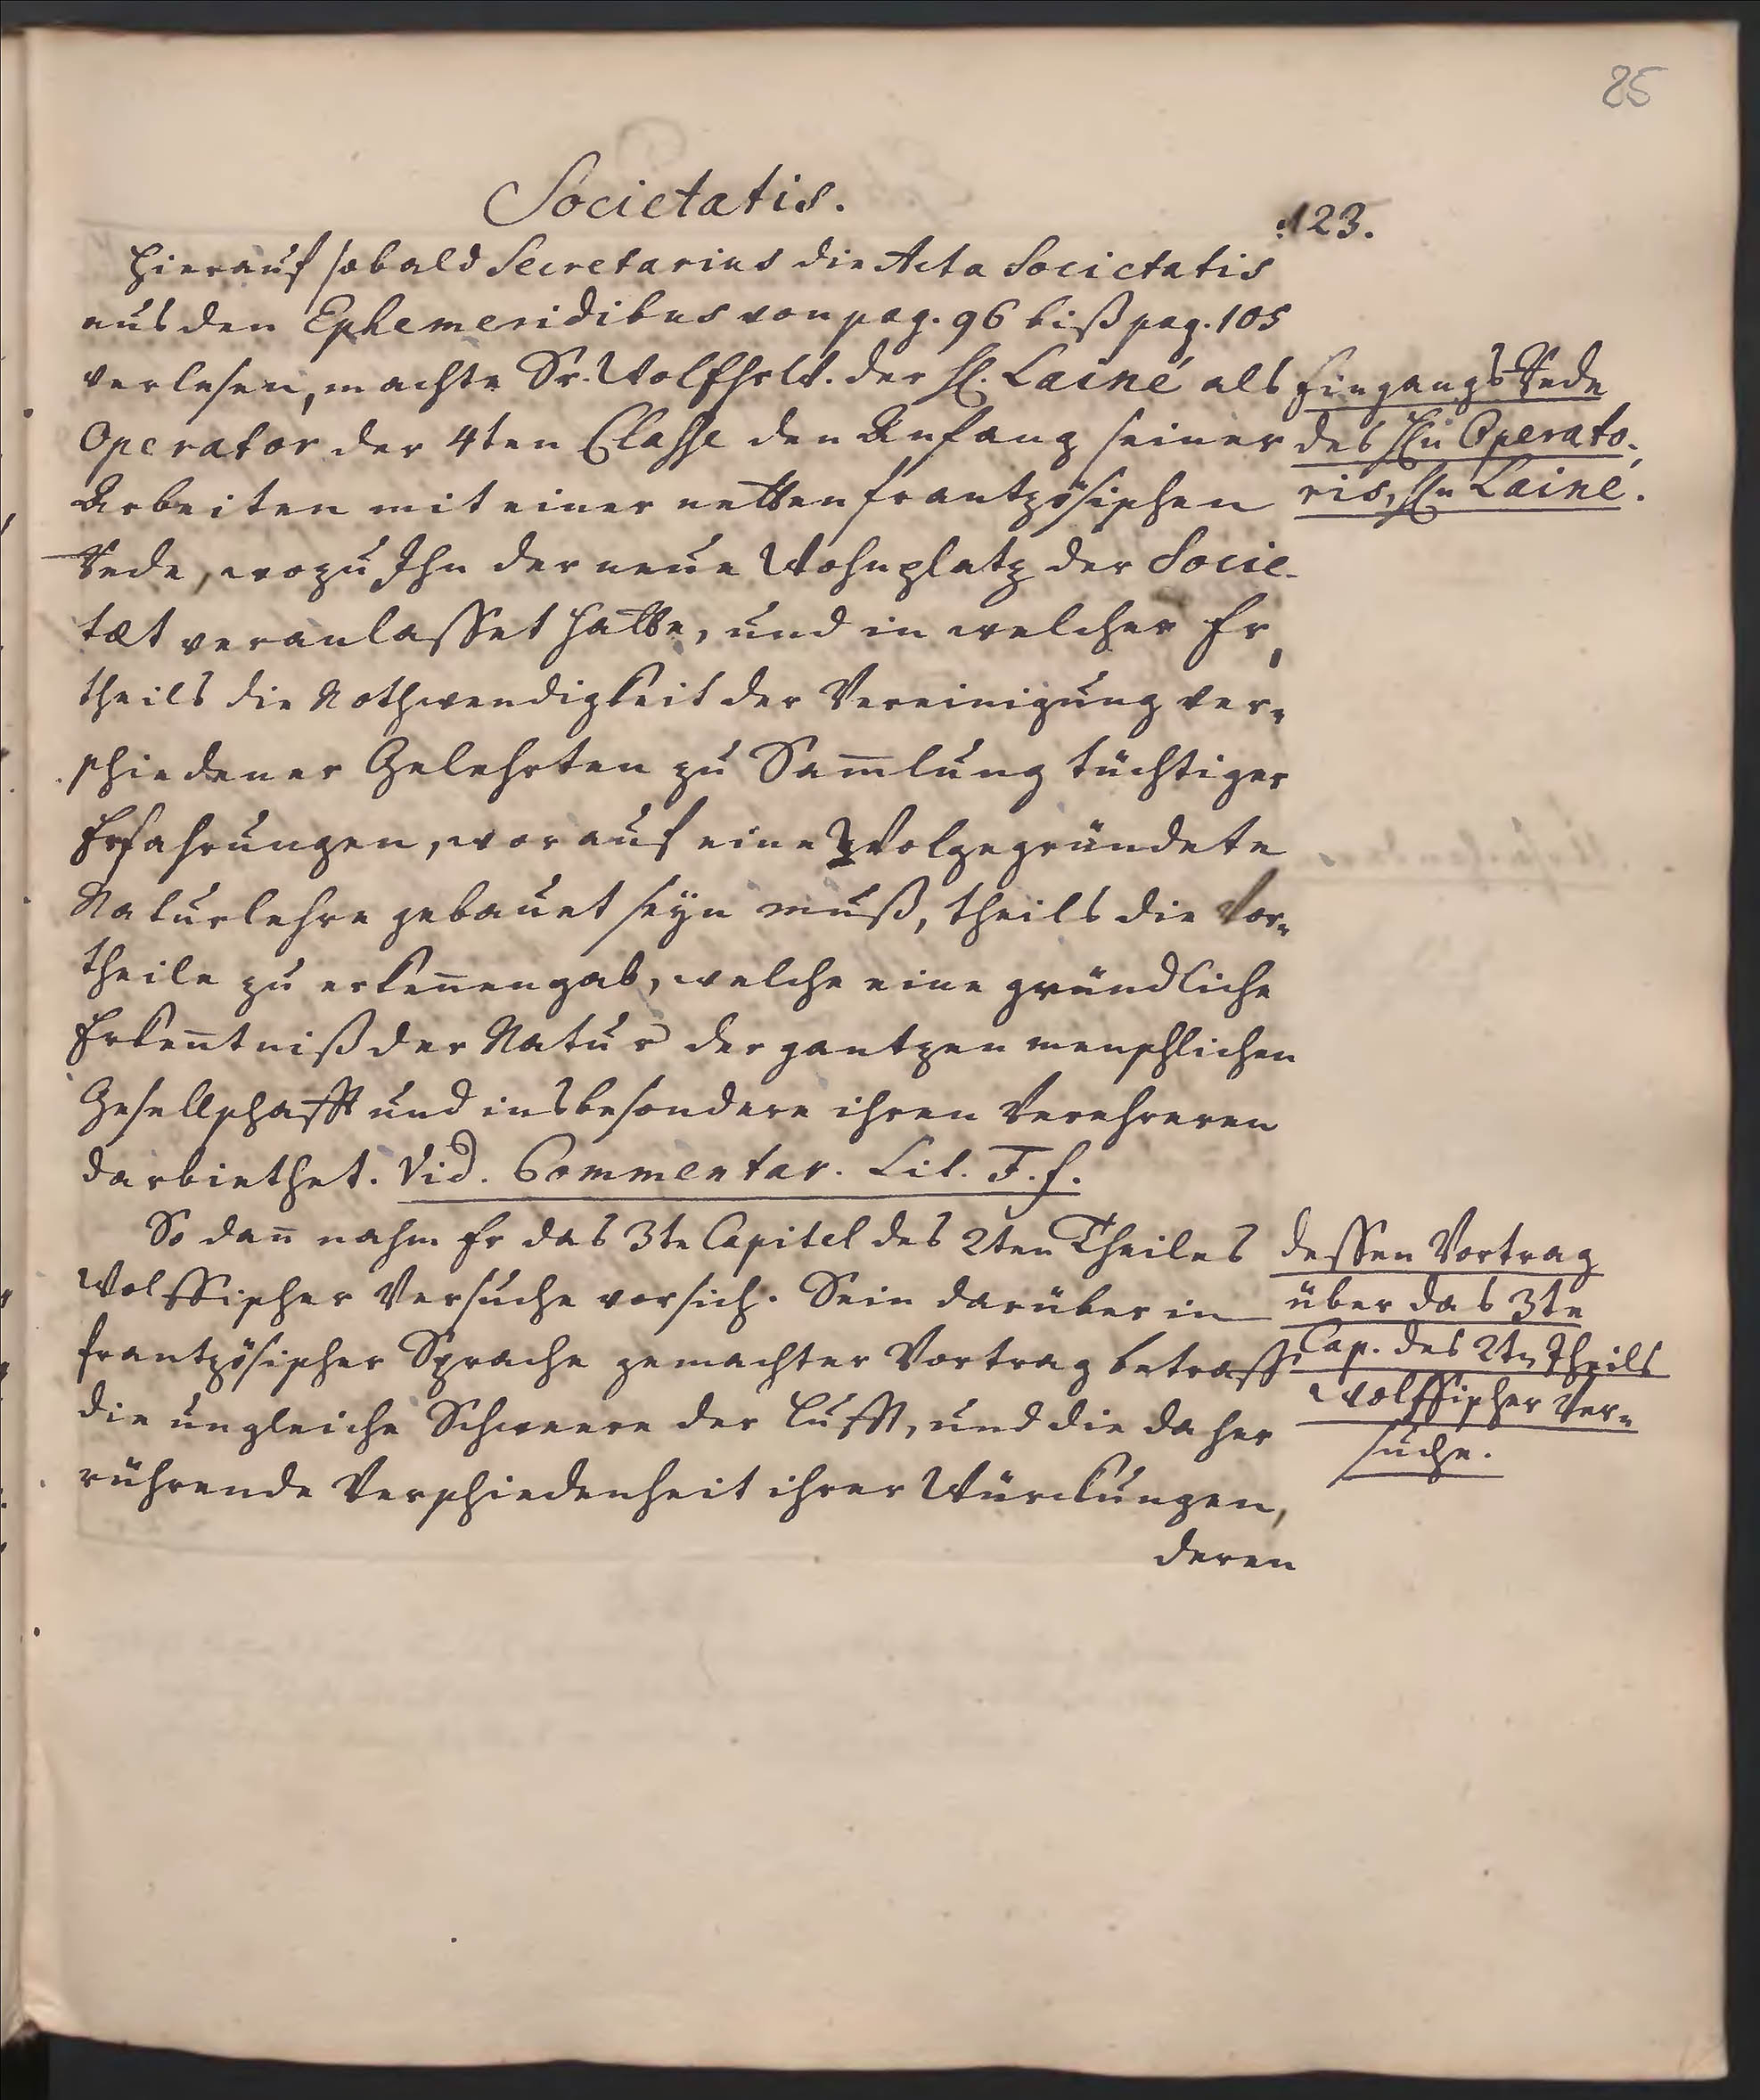 85
Societatis.
123.
Hierauf sobald Secretarius die Acta Societatis
aus den Ephemeridibus von pag. 96 biß pag. 105
verlesen, machte Sr. der H. Lainé als
Operator der 4ten Classe den Anfang seiner
Arbeiten mit einer netten frantzösischen
Rede, wozu Ihn der neue Wohnplatz der Socie-
tæt veranlasset hatte, und in welcher Er,
theils die Nothwendigkeit der Vereinigung ver-
schiedener Gelehrten zu Sam̅lung tüchtiger
Erfahrungen, worauf eine Wolgegründete
Naturlehre gebauet seyn muß, theils die Vor-
theile zu erken̅en gab, welche eine gründliche
Erken̅tniß der Natur der gantzen menschlichen
Gesellschafft und insbesondere ihren Verehreren
darbiethet. Vid. Commentar. Lit. F. f.
So dan̅ nahm Er das 3te Capitel des 2ten Theiles
Wolffischer Versuche vor sich. Sein darüber in
frantzösischer Sprache gemachter Vortrag betraff
die ungleiche Schweere der Lufft, und die daher
rührende Verschiedenheit ihrer Würckungen,
deren
Eingangs Rede
des Hn̅ Operato-
ris, Hn Lainé.
dessen Vortrag
über das 3te
Cap. des 2tn Theils
Wolffischer Ver-
suche.